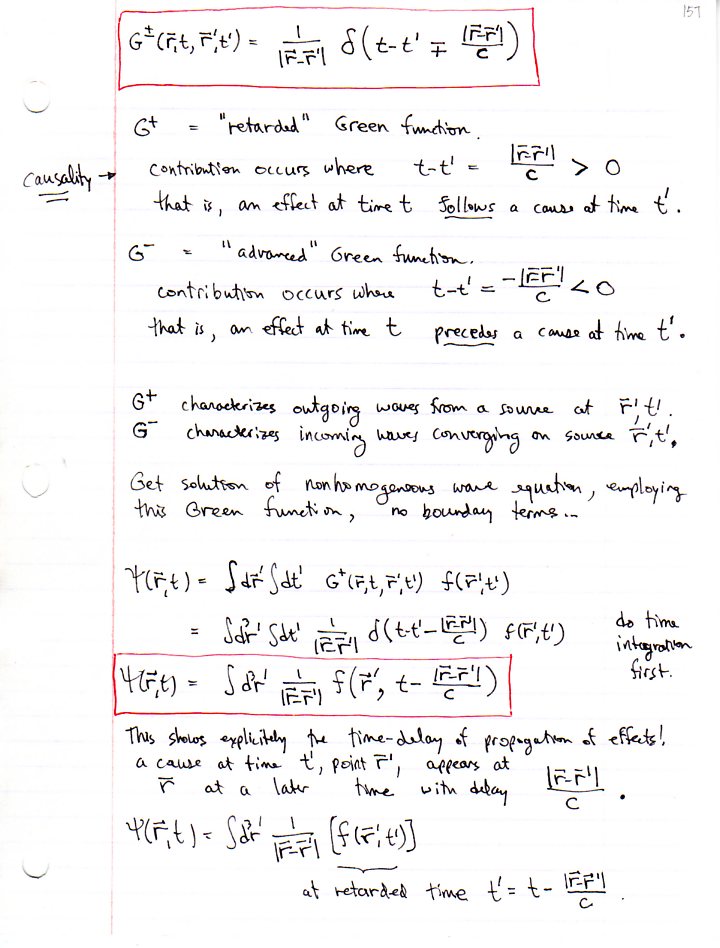 157
G±(r̄,t, r̄',t') = 1/|r̄-r̄'| δ(t-t' ∓ |r̄-r̄'|/c)
G⁺ = "retarded" Green function.
contribution occurs where t-t' = |r̄-r̄'|/c > 0
causality →
that is, an effect at time t follows a cause at time t'.
G⁻ = "advanced" Green function.
contribution occurs where t-t' = -|r̄-r̄'|/c < 0
that is, an effect at time t precedes a cause at time t'.
G⁺ characterizes outgoing waves from a source at r̄',t'.
G⁻ characterizes incoming waves converging on source r̄',t'.
Get solution of nonhomogeneous wave equation, employing
this Green function, no boundary terms...
Ψ(r̄,t) = ∫dr̄' ∫dt' G⁺(r̄,t,r̄',t') f(r̄',t')
= ∫d³r' ∫dt' 1/|r̄-r̄'| δ(t-t'-|r̄-r̄'|/c) f(r̄',t')
do time
integration
first.
Ψ(r̄,t) = ∫d³r' 1/|r̄-r̄'| f(r̄', t-|r̄-r̄'|/c)
This shows explicitly the time-delay of propagation of effects!
a cause at time t', point r̄', appears at
r̄ at a later time with delay |r̄-r̄'|/c .
Ψ(r̄,t) = ∫d³r' 1/|r̄-r̄'| [f(r̄',t')]
at retarded time t' = t - |r̄-r̄'|/c .